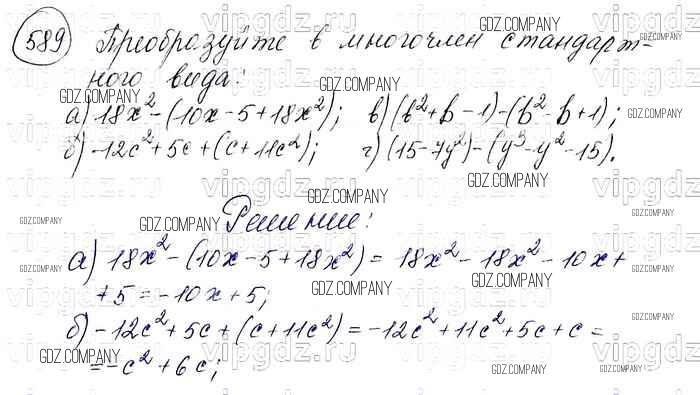 589 Преобразуйте в многочлен стандарт-
ного вида:
а) 18x² - (10x - 5 + 18x²); в) (b² + b - 1) - (b² - b + 1);
б) -12c² + 5c + (c + 11c²); г) (15 - 7y²) - (y³ - y² - 15).
Решение:
а) 18x² - (10x - 5 + 18x²) = 18x² - 18x² - 10x +
+ 5 = -10x + 5;
б) -12c² + 5c + (c + 11c²) = -12c² + 11c² + 5c + c =
= -c² + 6c;
GDZ.COMPANY
vipgdz.ru